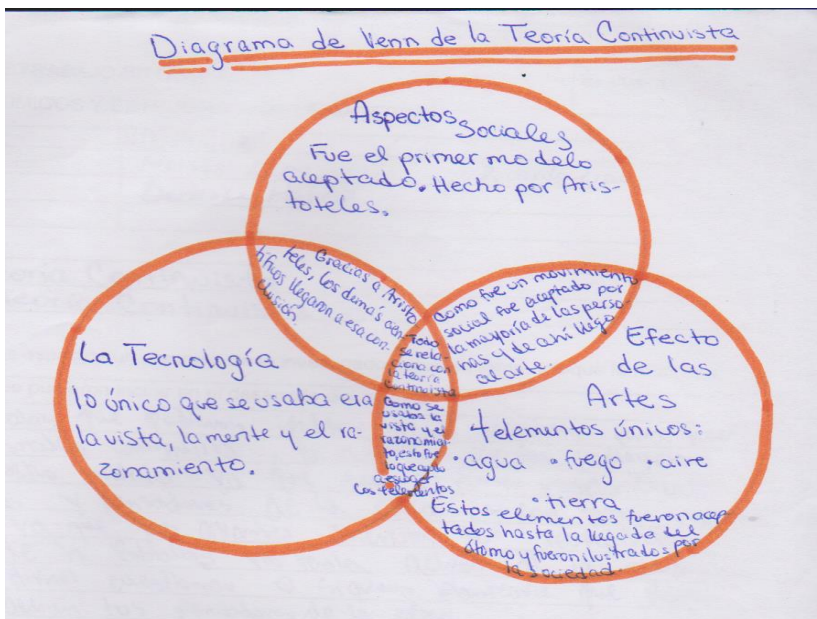 Diagrama de Venn de la Teoría Continuista
Aspectos Sociales
Fue el primer modelo
aceptado. Hecho por Aris-
toteles.
Gracias a Aristo
teles, los demás cien-
tificos llegaron a esa con-
clusión.
Como fue un movimiento
social fue aceptado por
la mayoría de las perso-
nas y de ahí llego
al arte.
Todo
se rela-
ciona con
la teoría
Continuista
La Tecnología
lo único que se usaba era
la vista, la mente y el ra-
zonamiento.
Como se
usaba la
vista y el
razonamien-
to, esto fue
lo que ayudo
a esundar
los 4 elementos
Efecto
de las
Artes
4 elementos únicos:
• agua • fuego • aire
• tierra
Estos elementos fueron acep-
tados hasta la llegada del
átomo y fueron ilustrados por
la sociedad.